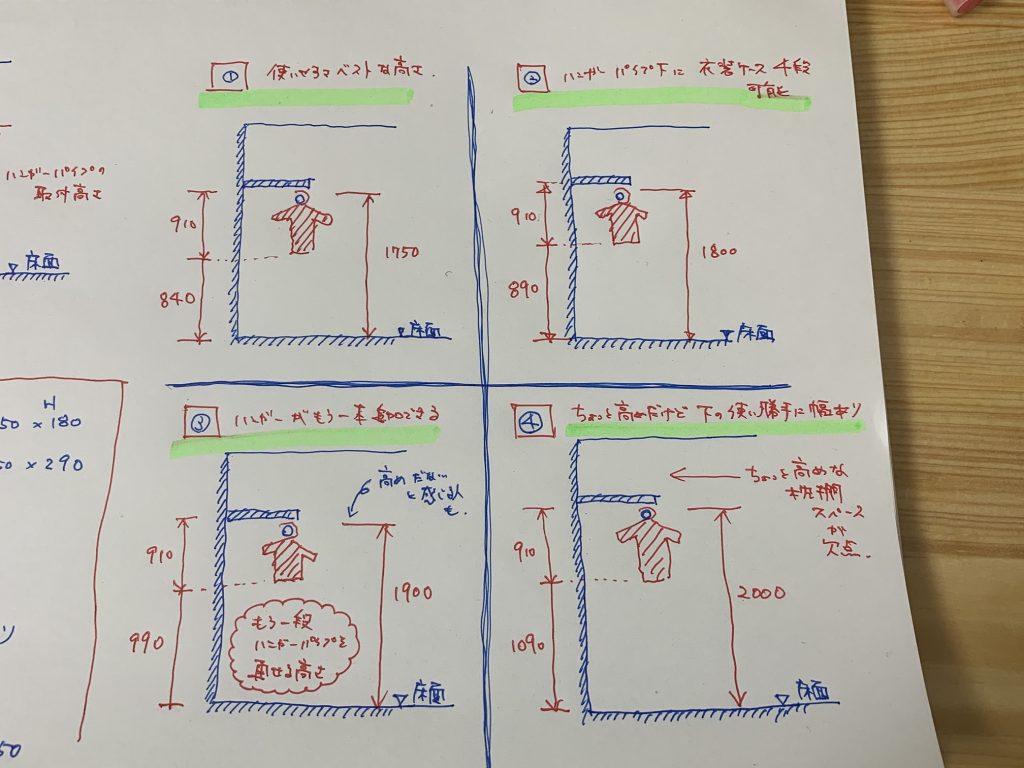 ハンガーパイプの
取付高さ
床面
H
50 × 180
50 × 290
50
①
ベストな高さ.
910
840
1750
床面
②
ハンガーパイプ下に 衣装ケース 4段
可能
910
890
1800
床面
③
ハンガーがもう一本追加できる
高めだな…
と感じる人
も.
910
990
1900
もう一段
ハンガーパイプを
高さ
床面
④
ちょっと高めだけど 下の使い勝手に幅あり
ちょっと高めな
枕棚
スペース
が
欠点.
910
1090
2000
床面